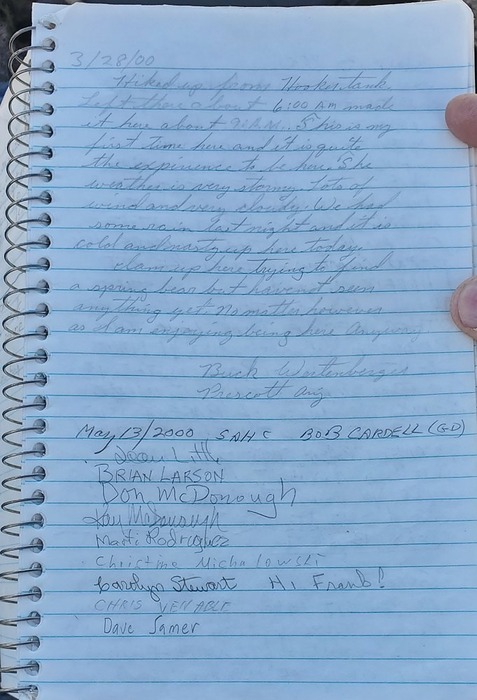 3/28/00
Hiked up from Hooker tank
Left there about 6:00 AM made
it here about 9 A.M. This is my
first time here and it is quite
the experience to be here. The
weather is very stormy. Lots of
wind and very cloudy. We had
some rain last night and it is
cold and nasty up here today.
I am up here trying to find
a spring bear but have not seen
anything yet. No matter however
as I am enjoying being here anyway
Buck
Prescott Ariz
May/13/2000 SAHC BOB CARDELL (GD)
BRIAN LARSON
Don McDonough
Kay McDonough
Marti Rodriguez
Christine Michalowski
Carolyn Stewart Hi Frank!
CHRIS VENABLE
Dave Samer